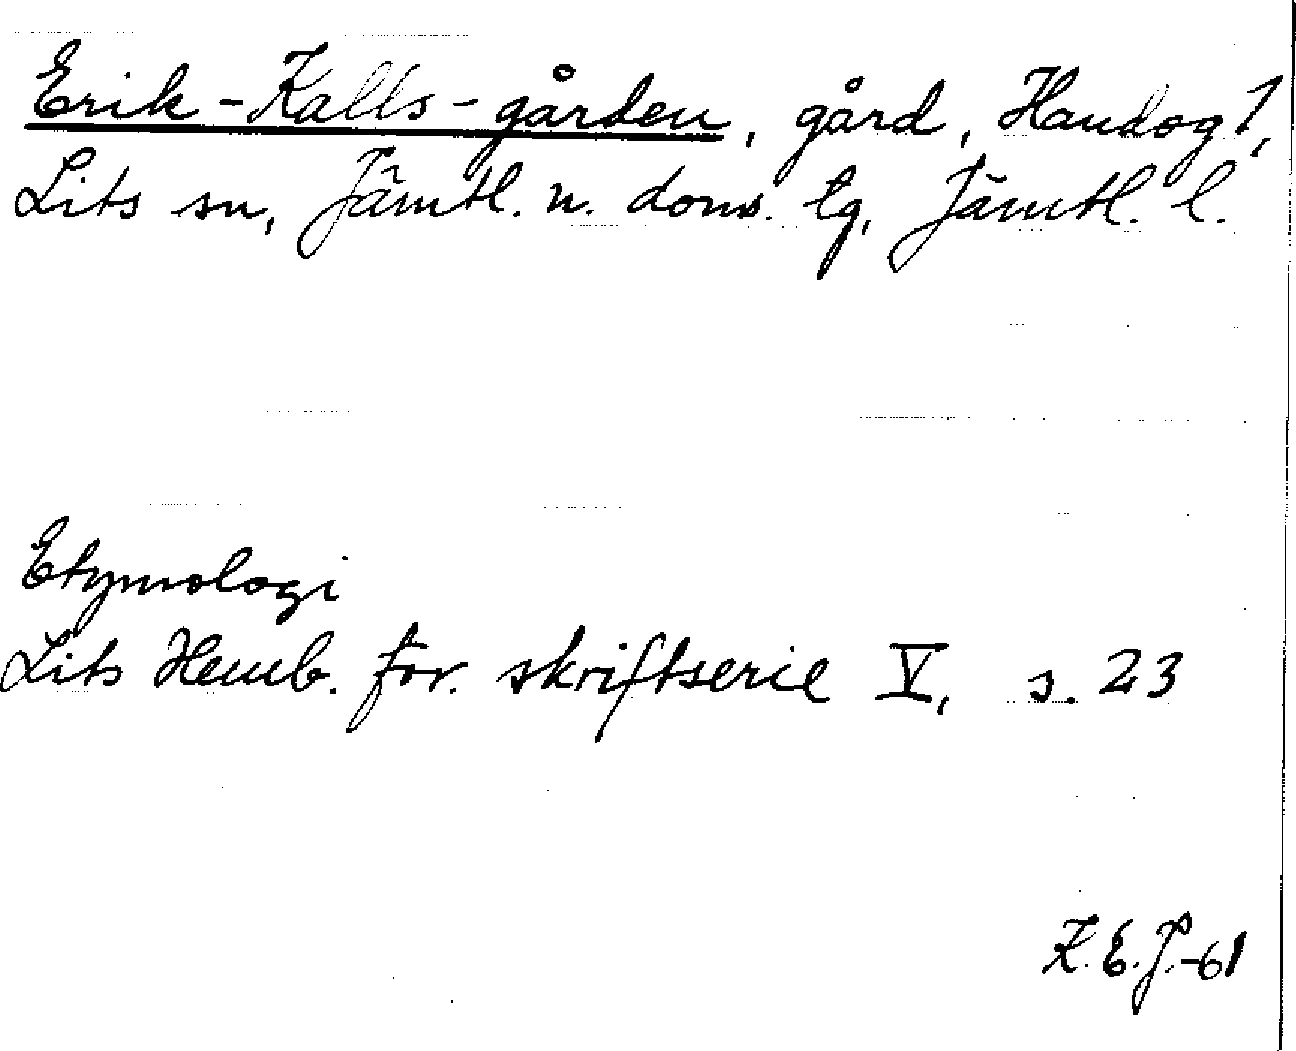 Erik-Kalls-gården, gård, Handog 1,
Lits sn, Jämtl. n. doms. lg, Jämtl. l.
Etymologi
Lits Hemb. för. skriftserie V, s. 23
K.E.J.-61